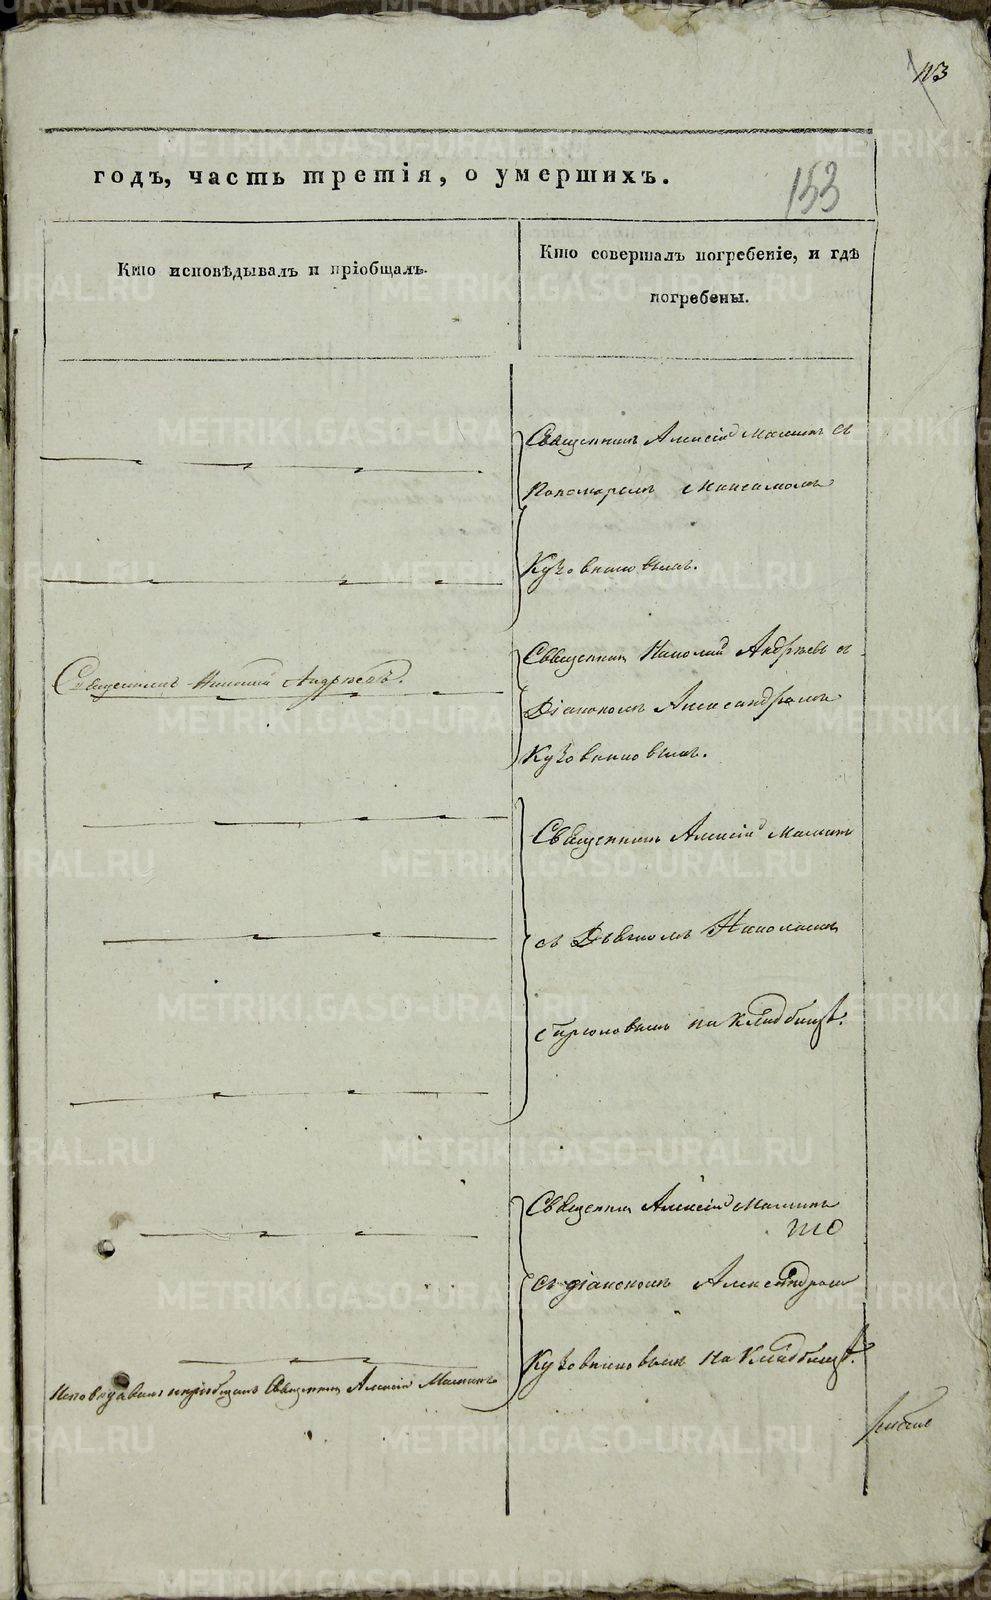 113
годъ, часть третія, о умершихъ.
153
Кто исповѣдывалъ и пріобщалъ.
Кто совершалъ погребеніе, и гдѣ
погребены.
Священникъ Алексій Маминъ съ
Пономаремъ Максимомъ
Кузовниковымъ.
Священникъ Николай Андреевъ.
Священникъ Николай Андреевъ съ
Діакономъ Александромъ
Кузовниковымъ.
Священникъ Алексій Маминъ
съ Дьячкомъ Николаемъ
на кладбищѣ.
Священникъ Алексій Маминъ
что
съ діакономъ Александромъ
Кузовниковымъ на кладбищѣ.
Исповѣдавалъ и пріобщалъ Священникъ Алексій Маминъ
METRIKI.GASO-URAL.RU